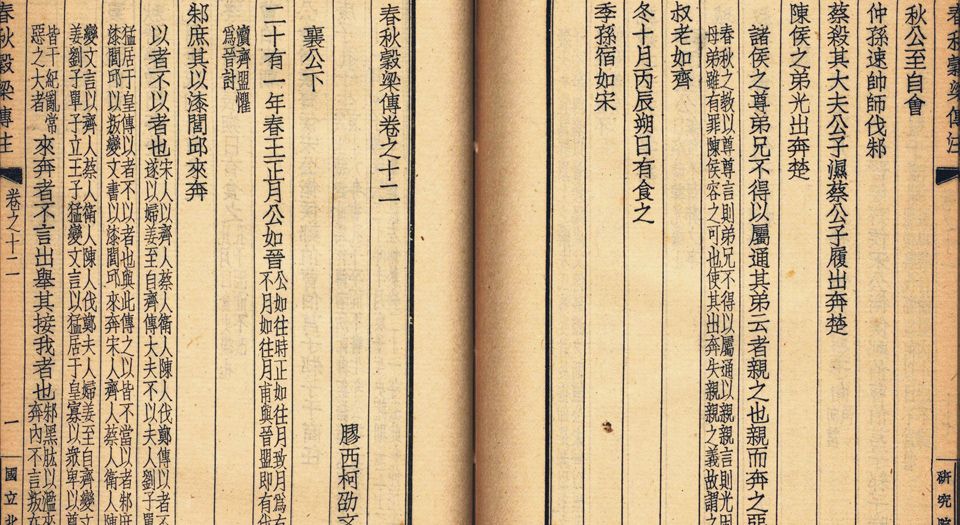 春秋穀梁傳注
研究院
秋公至自會
仲孫速帥師伐邾
蔡殺其大夫公子濕蔡公子履出奔楚
陳侯之弟光出奔楚
諸侯之尊弟兄不得以屬通其弟云者親之也親而奔之惡
春秋之教以尊尊言則弟兄不得以屬通以親親言則光
母弟雖有罪陳侯容之可也使其出奔失親親之義故謂之
叔老如齊
冬十月丙辰朔日有食之
季孫宿如宋
春秋穀梁傳卷之十二
膠西柯劭
襄公下
二十有一年春王正月公如晉
公如往時正如往月致月爲
不月如往月甫與晉盟即有
瀆齊盟懼
爲晉討
邾庶其以漆閭邱來奔
以者不以者也
宋人以齊人蔡人衛人陳人伐鄭傳以者不
遂以婦姜至自齊傳大夫不以夫人劉子單
猛居于皇傳以者不以者也與此傳之以皆不當以者邾庶
漆閭邱以叛變文書以漆閭邱來奔宋人齊人蔡人衛人陳
變文言以齊人蔡人衛人陳人伐鄭夫人婦姜至自齊變文
姜劉子單子立王子猛變文言以猛居于皇寡以衆卑以尊
皆干紀亂常
惡之大者
來奔者不言出舉其接我者也
邾黑肱以濫來
奔內不言叛
春秋穀梁傳注
卷之十二
一
國立北